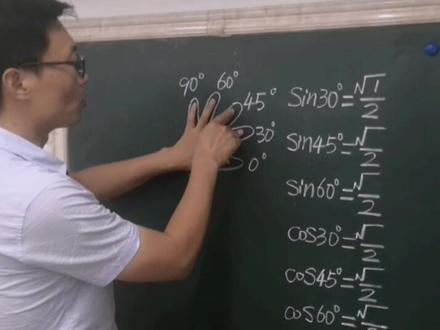 90° 60° 45° 30° 0°
Sin30°=√1/2
Sin45°=√/2
Sin60°=√/2
cos30°=√/2
cos45°=√/2
cos60°=√/2